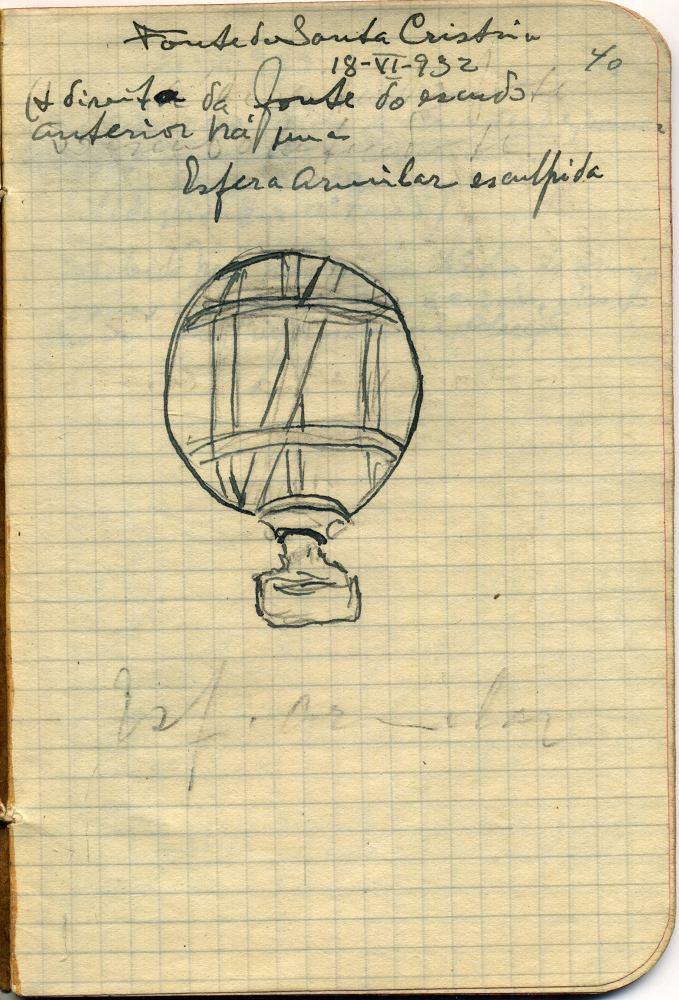 Fonte de Santa Cristina
18-VI-932
40
À direita da fonte do escudo
anterior há uma
Esfera Armilar esculpida
Esf. armilar